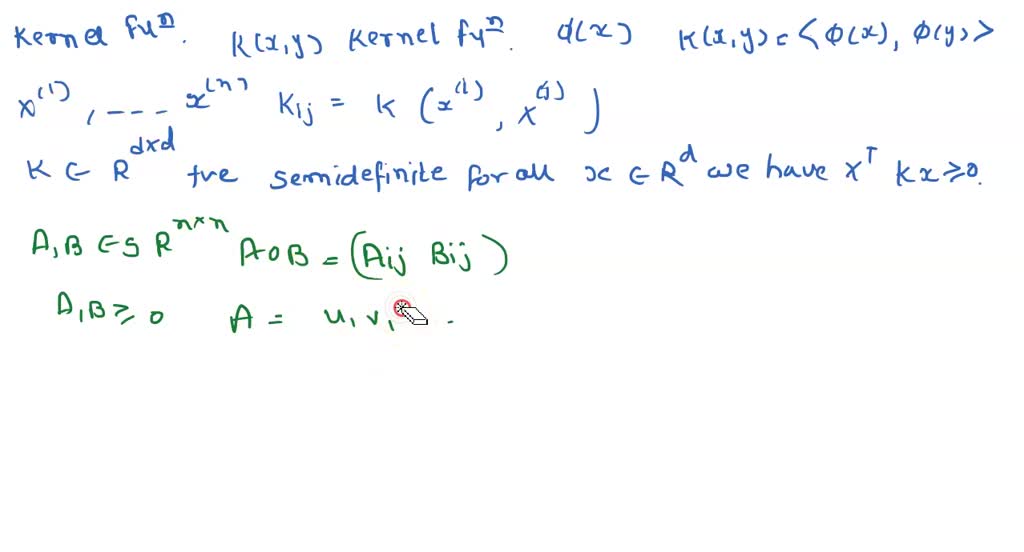 Kernel fyⁿ. K(x,y) Kernel fyⁿ. ϕ(x) K(x,y) = <Φ(x), Φ(y)>
x⁽¹⁾, --- x⁽ⁿ⁾ Kij = K (x⁽ⁱ⁾, x⁽ʲ⁾)
K ∈ R^dxd +ve semidefinite for all x ∈ R^d we have x^T Kx ≥ 0.
A,B ∈ S R^n×n A∘B = (Aij Bij)
A,B ≥ 0 A = u, v,